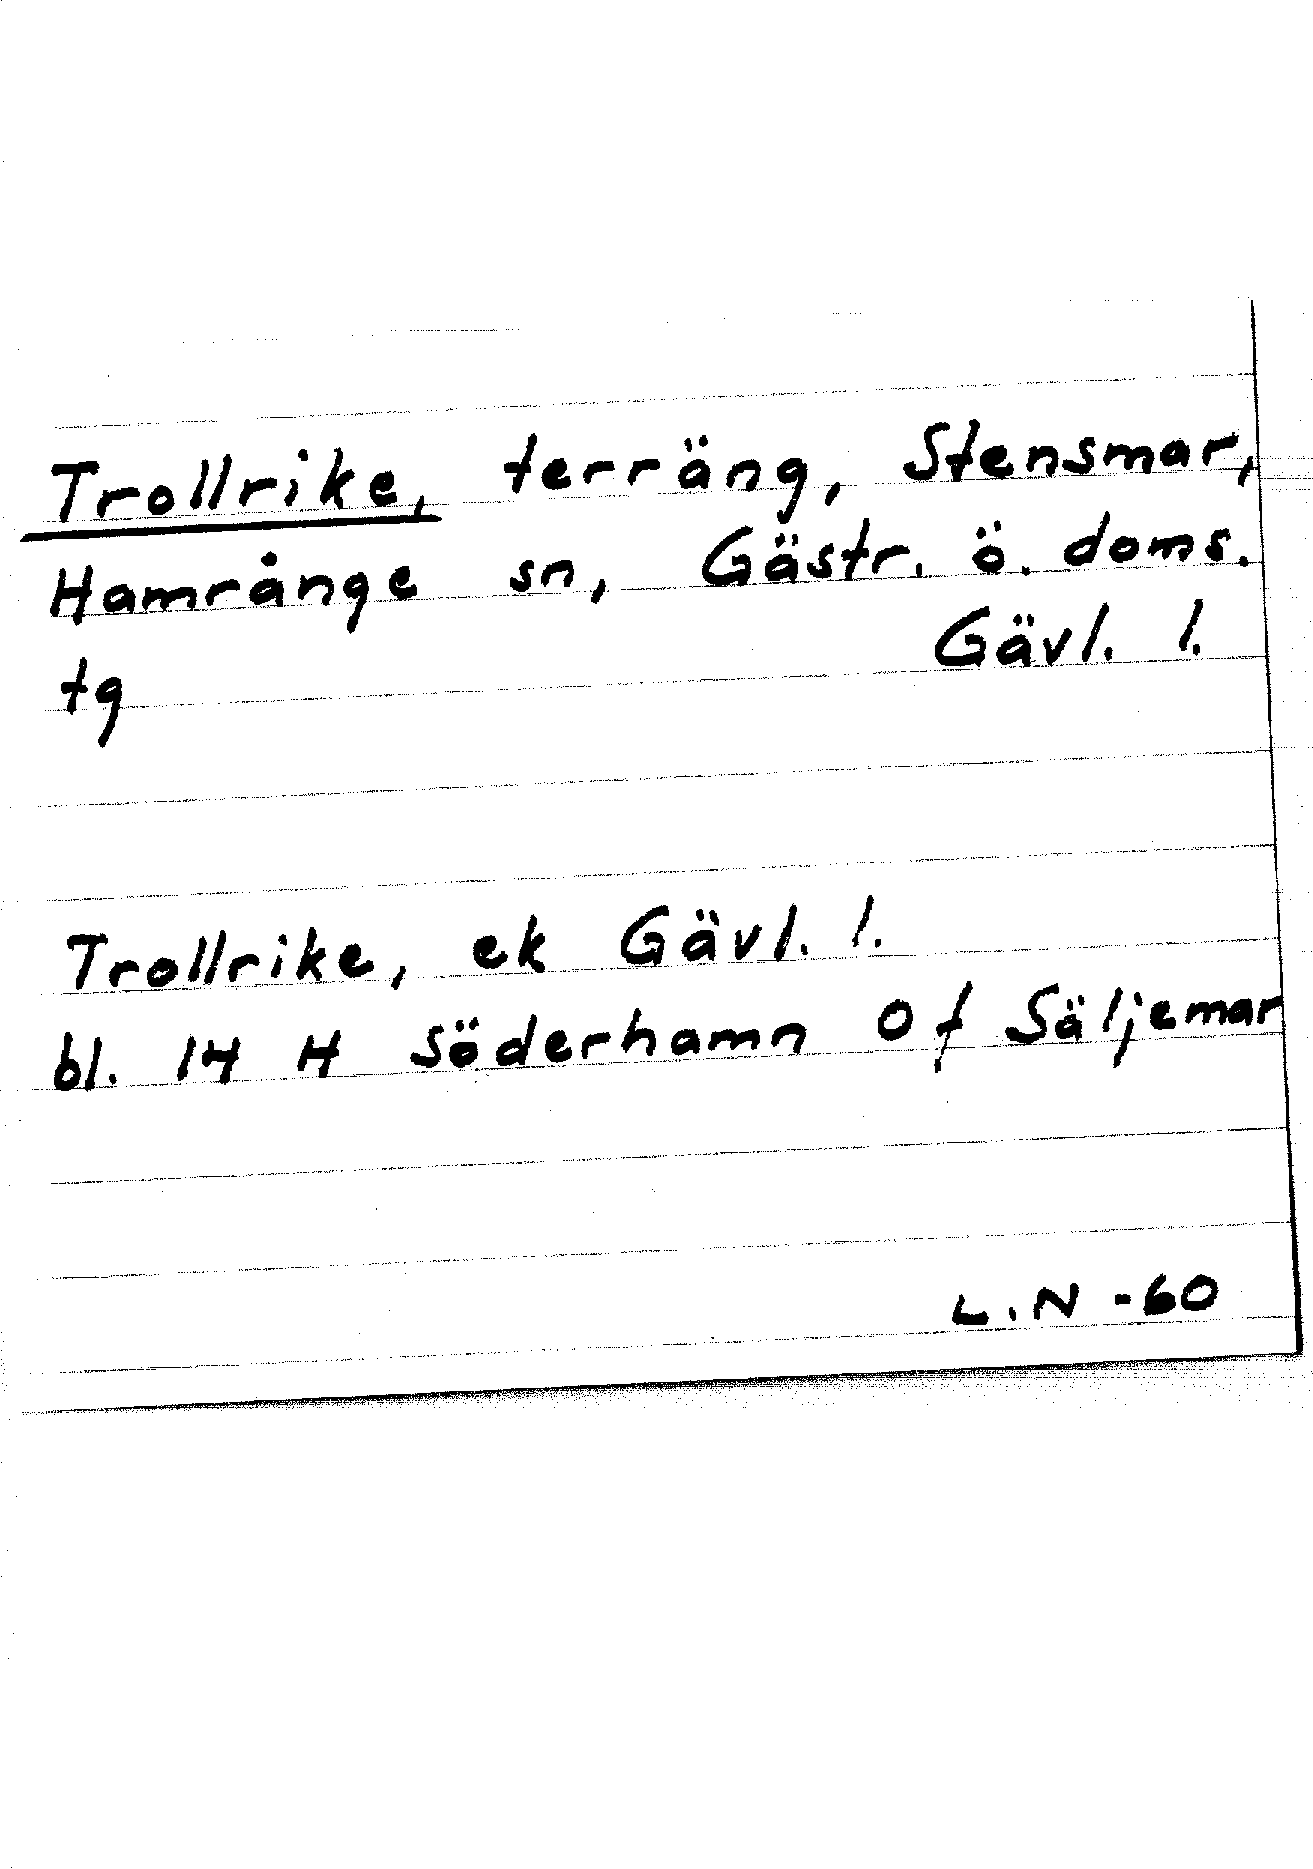 Trollrike, terräng, Stensmar,
Hamrånge sn, Gästr. ö. doms.
tg Gävl. l.
Trollrike, ek Gävl. l.
bl. 14 H Söderhamn Of Säljemar
L.N -60